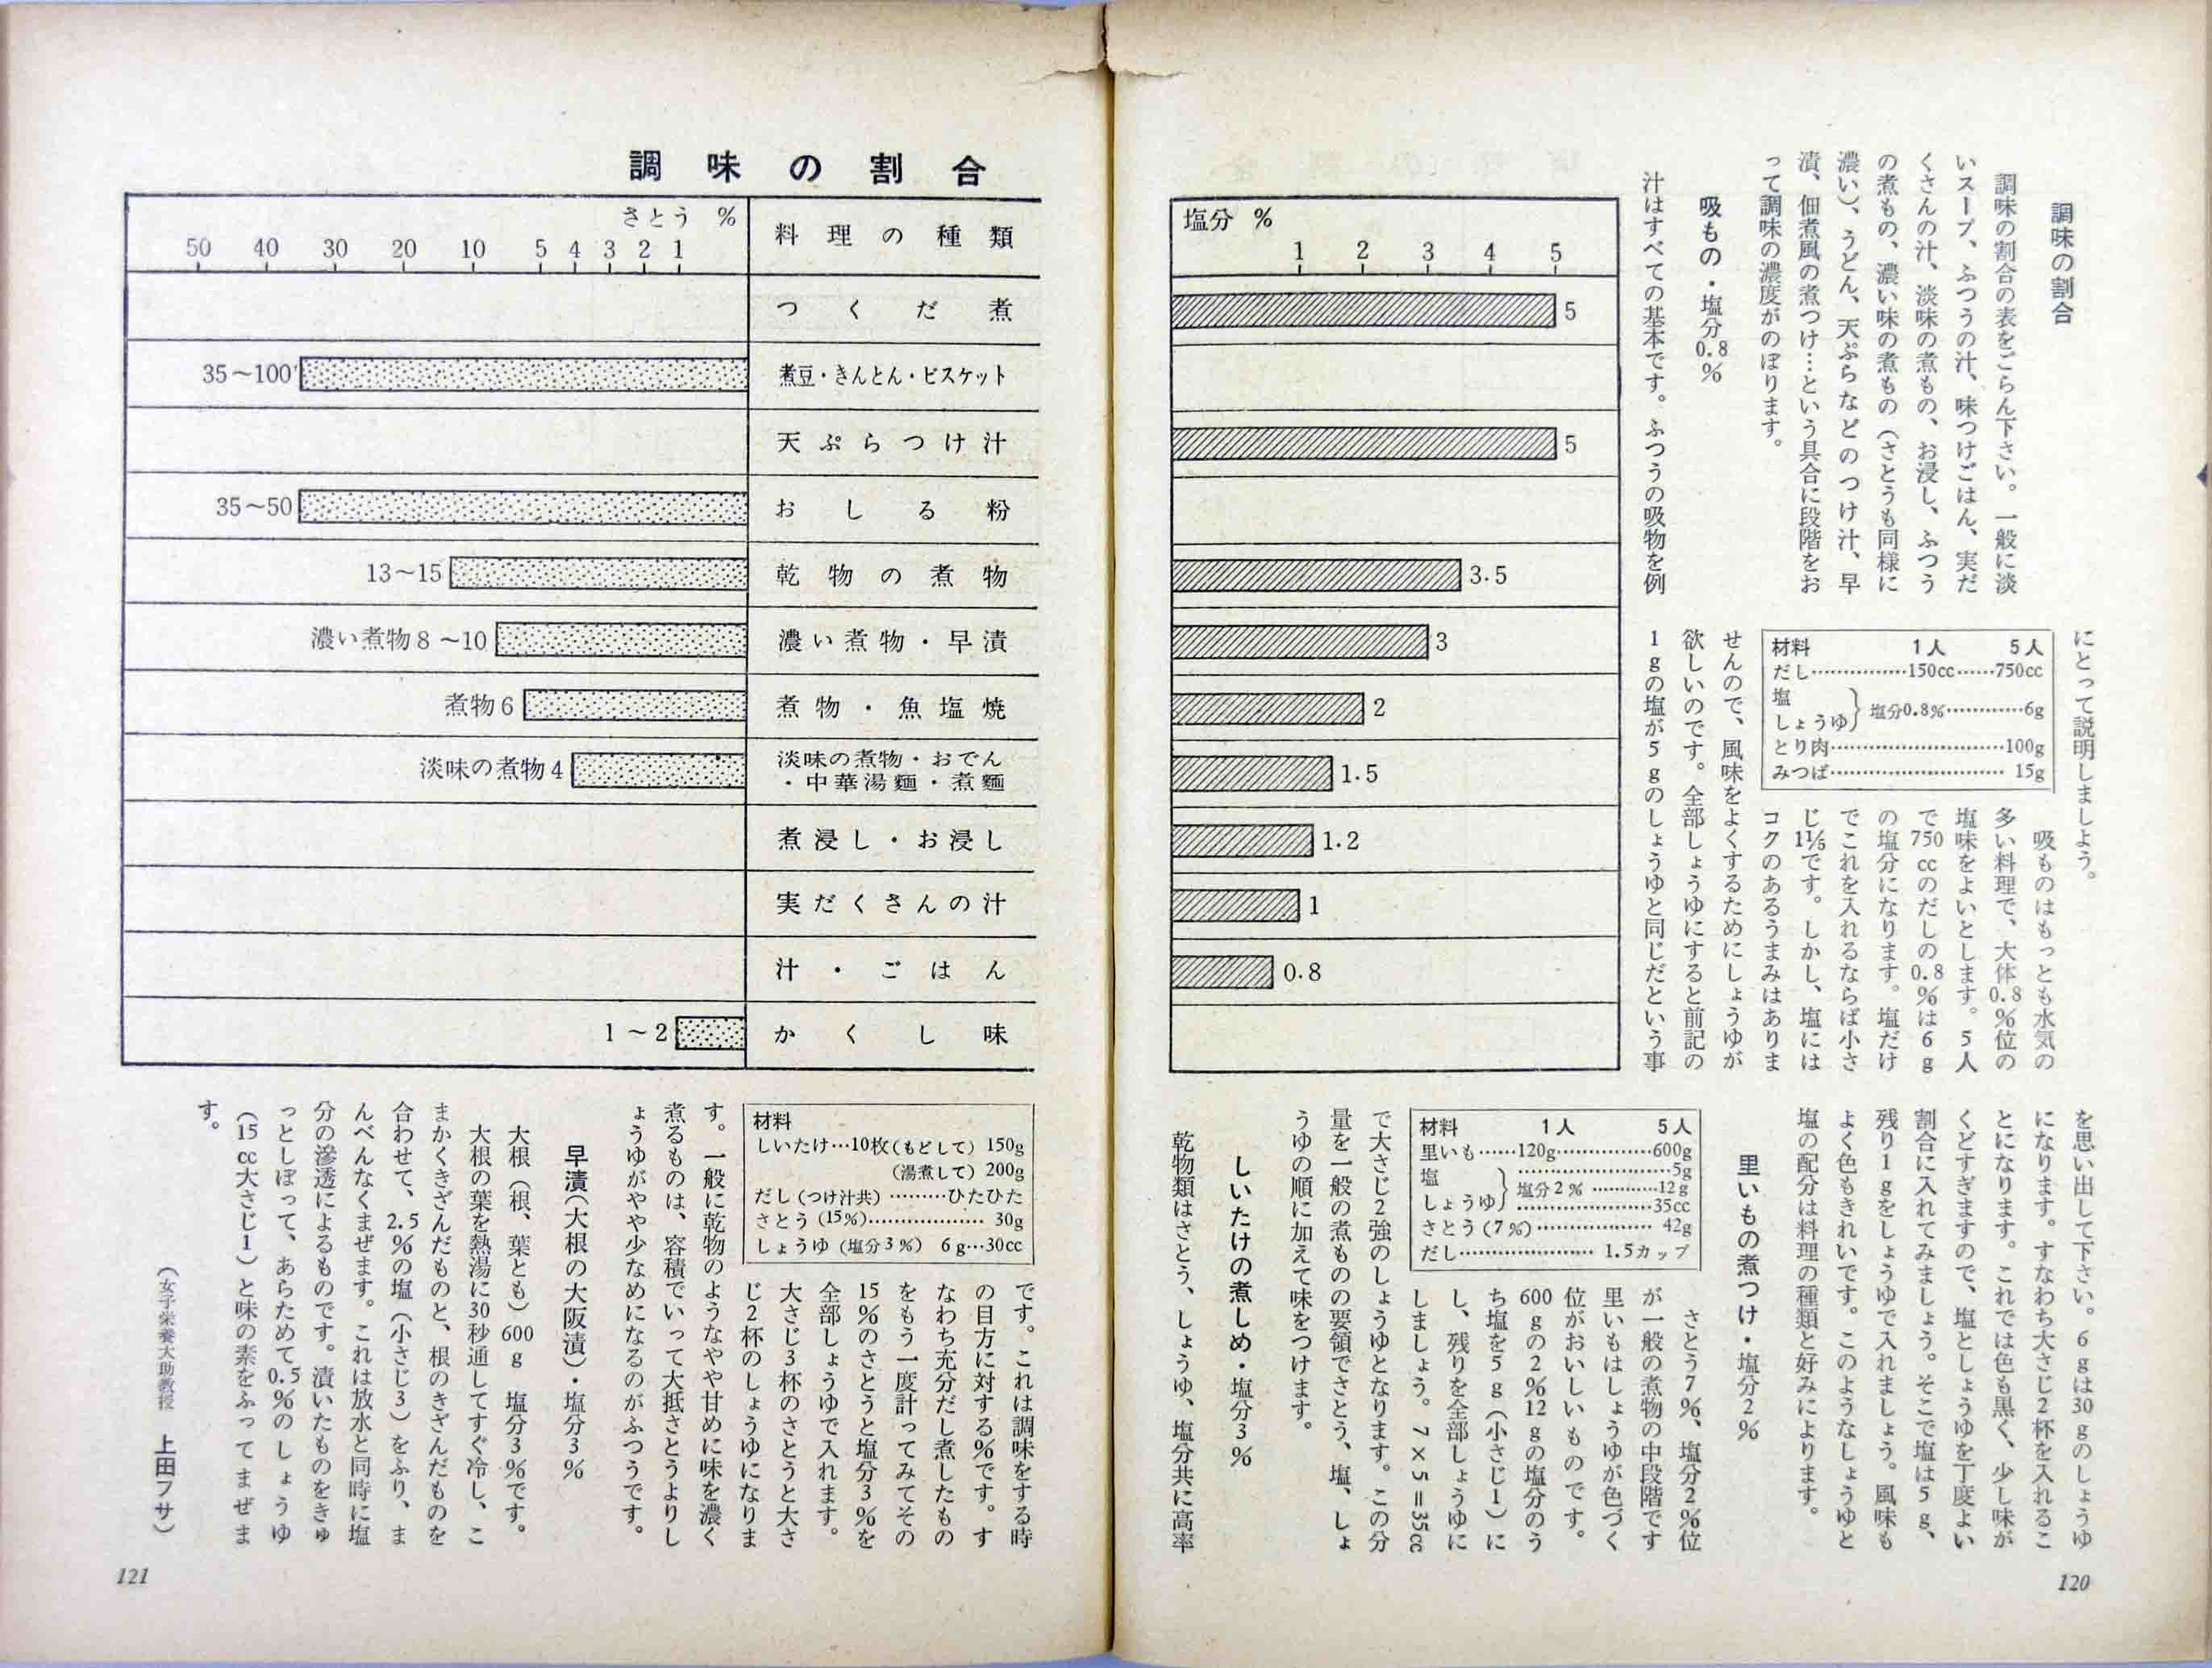 調味の割合
調味の割合の表をごらん下さい。一般に淡
いスープ、ふつうの汁、味つけごはん、実だ
くさんの汁、淡味の煮もの、お浸し、ふつう
の煮もの、濃い味の煮もの（さとうも同様に
濃い）、うどん、天ぷらなどのつけ汁、早
漬、佃煮風の煮つけ…という具合に段階をお
って調味の濃度がのぼります。
吸もの・塩分0.8％
汁はすべての基本です。ふつうの吸物を例
にとって説明しましよう。
材料 1人 5人
だし……………150cc……750cc
塩
しょうゆ｝塩分0.8%…………6g
とり肉………………………100g
みつば……………………… 15g
吸ものはもっとも水気の
多い料理で、大体0.8％位の
塩味をよいとします。5人
で750ccのだしの0.8％は6g
の塩分になります。塩だけ
でこれを入れるならば小さ
じ1⅕です。しかし、塩には
コクのあるうまみはありま
せんので、風味をよくするためにしょうゆが
欲しいのです。全部しょうゆにすると前記の
1gの塩が5gのしょうゆと同じだという事
を思い出して下さい。6gは30gのしょうゆ
になります。すなわち大さじ2杯を入れるこ
とになります。これでは色も黒く、少し味が
くどすぎますので、塩としょうゆを丁度よい
割合に入れてみましょう。そこで塩は5g、
残り1gをしょうゆで入れましょう。風味も
よく色もきれいです。このようなしょうゆと
塩の配分は料理の種類と好みによります。
里いもの煮つけ・塩分2％
材料 1人 5人
里いも……120g……………600g
塩 ……………………5g
しょうゆ｝塩分2％…………12g
……………………35cc
さとう(7％)……………… 42g
だし………………… 1.5カップ
さとう7％、塩分2％位
が一般の煮物の中段階です
里いもはしょうゆが色づく
位がおいしいものです。
600gの2％12gの塩分のう
ち塩を5g（小さじ1）に
し、残りを全部しょうゆに
しましょう。7×5＝35cc
で大さじ2強のしょうゆとなります。この分
量を一般の煮ものの要領でさとう、塩、しょ
うゆの順に加えて味をつけます。
しいたけの煮しめ・塩分3％
乾物類はさとう、しょうゆ、塩分共に高率
塩分 ％
1 2 3 4 5
5
5
3.5
3
2
1.5
1.2
1
0.8
120
調味の割合
さとう ％ 料理の種類
50 40 30 20 10 5 4 3 2 1
つくだ煮
35〜100 煮豆・きんとん・ビスケット
天ぷらつけ汁
35〜50 おしる粉
13〜15 乾物の煮物
濃い煮物8〜10 濃い煮物・早漬
煮物6 煮物・魚塩焼
淡味の煮物4 淡味の煮物・おでん
・中華湯麺・煮麺
煮浸し・お浸し
実だくさんの汁
汁・ごはん
1〜2 かくし味
材料
しいたけ…10枚(もどして) 150g
(湯煮して) 200g
だし(つけ汁共)………ひたひた
さとう(15％)……………… 30g
しょうゆ(塩分3％) 6g…30cc
です。これは調味をする時
の目方に対する％です。す
なわち充分だし煮したもの
をもう一度計ってみてその
15％のさとうと塩分3％を
全部しょうゆで入れます。
大さじ3杯のさとうと大さ
じ2杯のしょうゆになりま
す。一般に乾物のようなやや甘めに味を濃く
煮るものは、容積でいって大抵さとうよりし
ょうゆがやや少なめになるのがふつうです。
早漬（大根の大阪漬）・塩分3％
大根（根、葉とも）600g 塩分3％です。
大根の葉を熱湯に30秒通してすぐ冷し、こ
まかくきざんだものと、根のきざんだものを
合わせて、2.5％の塩（小さじ3）をふり、ま
んべんなくまぜます。これは放水と同時に塩
分の滲透によるものです。漬いたものをきゅ
っとしぼって、あらためて0.5％のしょうゆ
（15cc大さじ1）と味の素をふってまぜま
す。
（女子栄養大助教授 上田フサ）
121